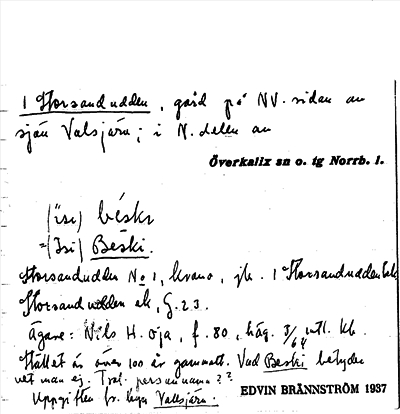 1 Storsandudden, gård på NV. sidan av
sjön Valsjärv; i N. delen av
Överkalix sn o. tg Norrb. l.
béskɩ
= (Isi) Beski.
Storsandudden No 1, krono, jfr. 1 Storsandudden
Storsandudden ek, G. 23.
Ägare: Nils H. Oja, f. 80, häg. 3/64 mtl. kr.
Stället är över 100 år gammalt. Vad Beski betyder
vet man ej. Trol. personnamn??
Uppgiften fr. byn Valsjärv.
EDVIN BRÄNNSTRÖM 1937